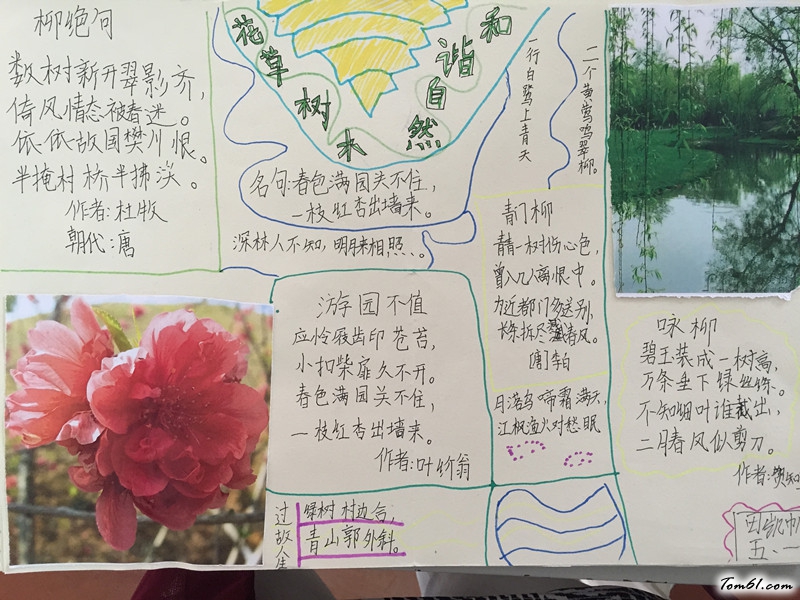 柳绝句
数树新开翠影齐，
倚风情态被春迷。
依依故国樊川恨。
半掩村桥半拂溪。
作者:杜牧
朝代:唐
花草树木
和谐自然
名句:春色满园关不住，
一枝红杏出墙来。
深林人不知，明月来相照。
一行白鹭上青天
二个黄莺鸣翠柳。
游园不值
应怜屐齿印苍苔，
小扣柴扉久不开。
春色满园关不住，
一枝红杏出墙来。
作者:叶竹翁
青门柳
青青一树伤心色，
曾入几人离恨中。
为近都门多送别，
长条折尽减春风。
[唐]李白
月落乌啼霜满天，
江枫渔火对愁眠
咏柳
碧玉装成一树高，
万条垂下绿丝绦。
不知细叶谁裁出，
二月春风似剪刀。
作者:贺知
过故人庄
绿树村边合，
青山郭外斜。
五、一
Tom61.com